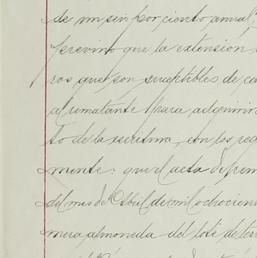 de un seis por ciento anual
previno que la extensión
ros que son susceptibles de ca
al rematante para adquirir
to de la escritura, con los reg
mente: que el acta de rem
del mes de Abril de mil ochocien
mera almoneda del lote de terr